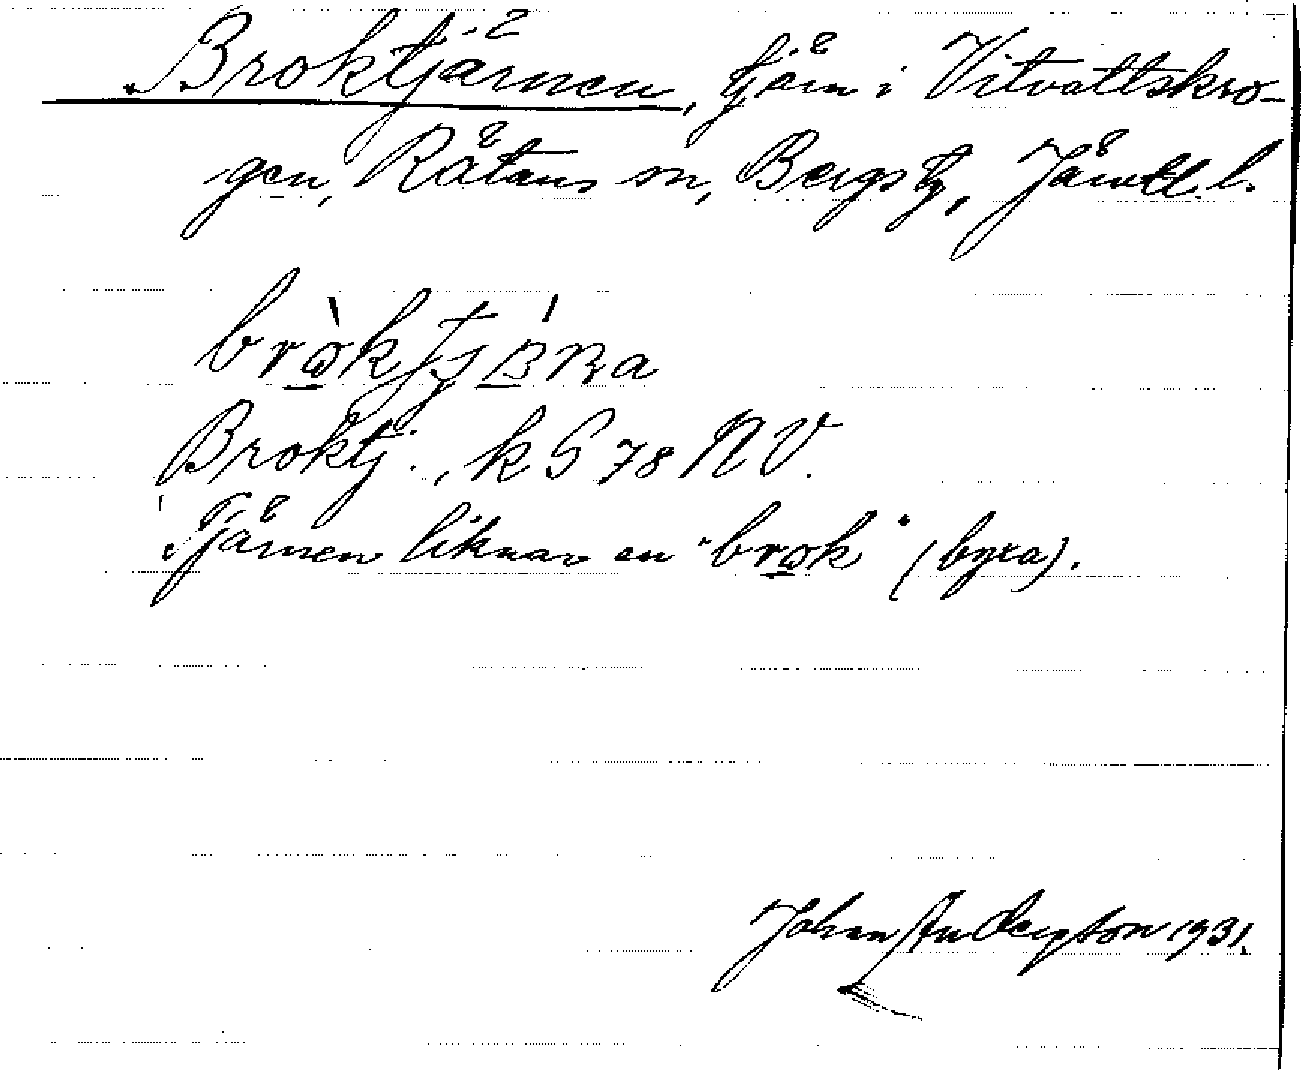 Broktjärnen, tjärn i Vitvattskro-
gen, Rätans sn, Bergs tg, Jämtl. l.
Broktj., k S 78 NV.
Tjärnen liknar en "brok" (byxa).
Johan Anderson 1931.